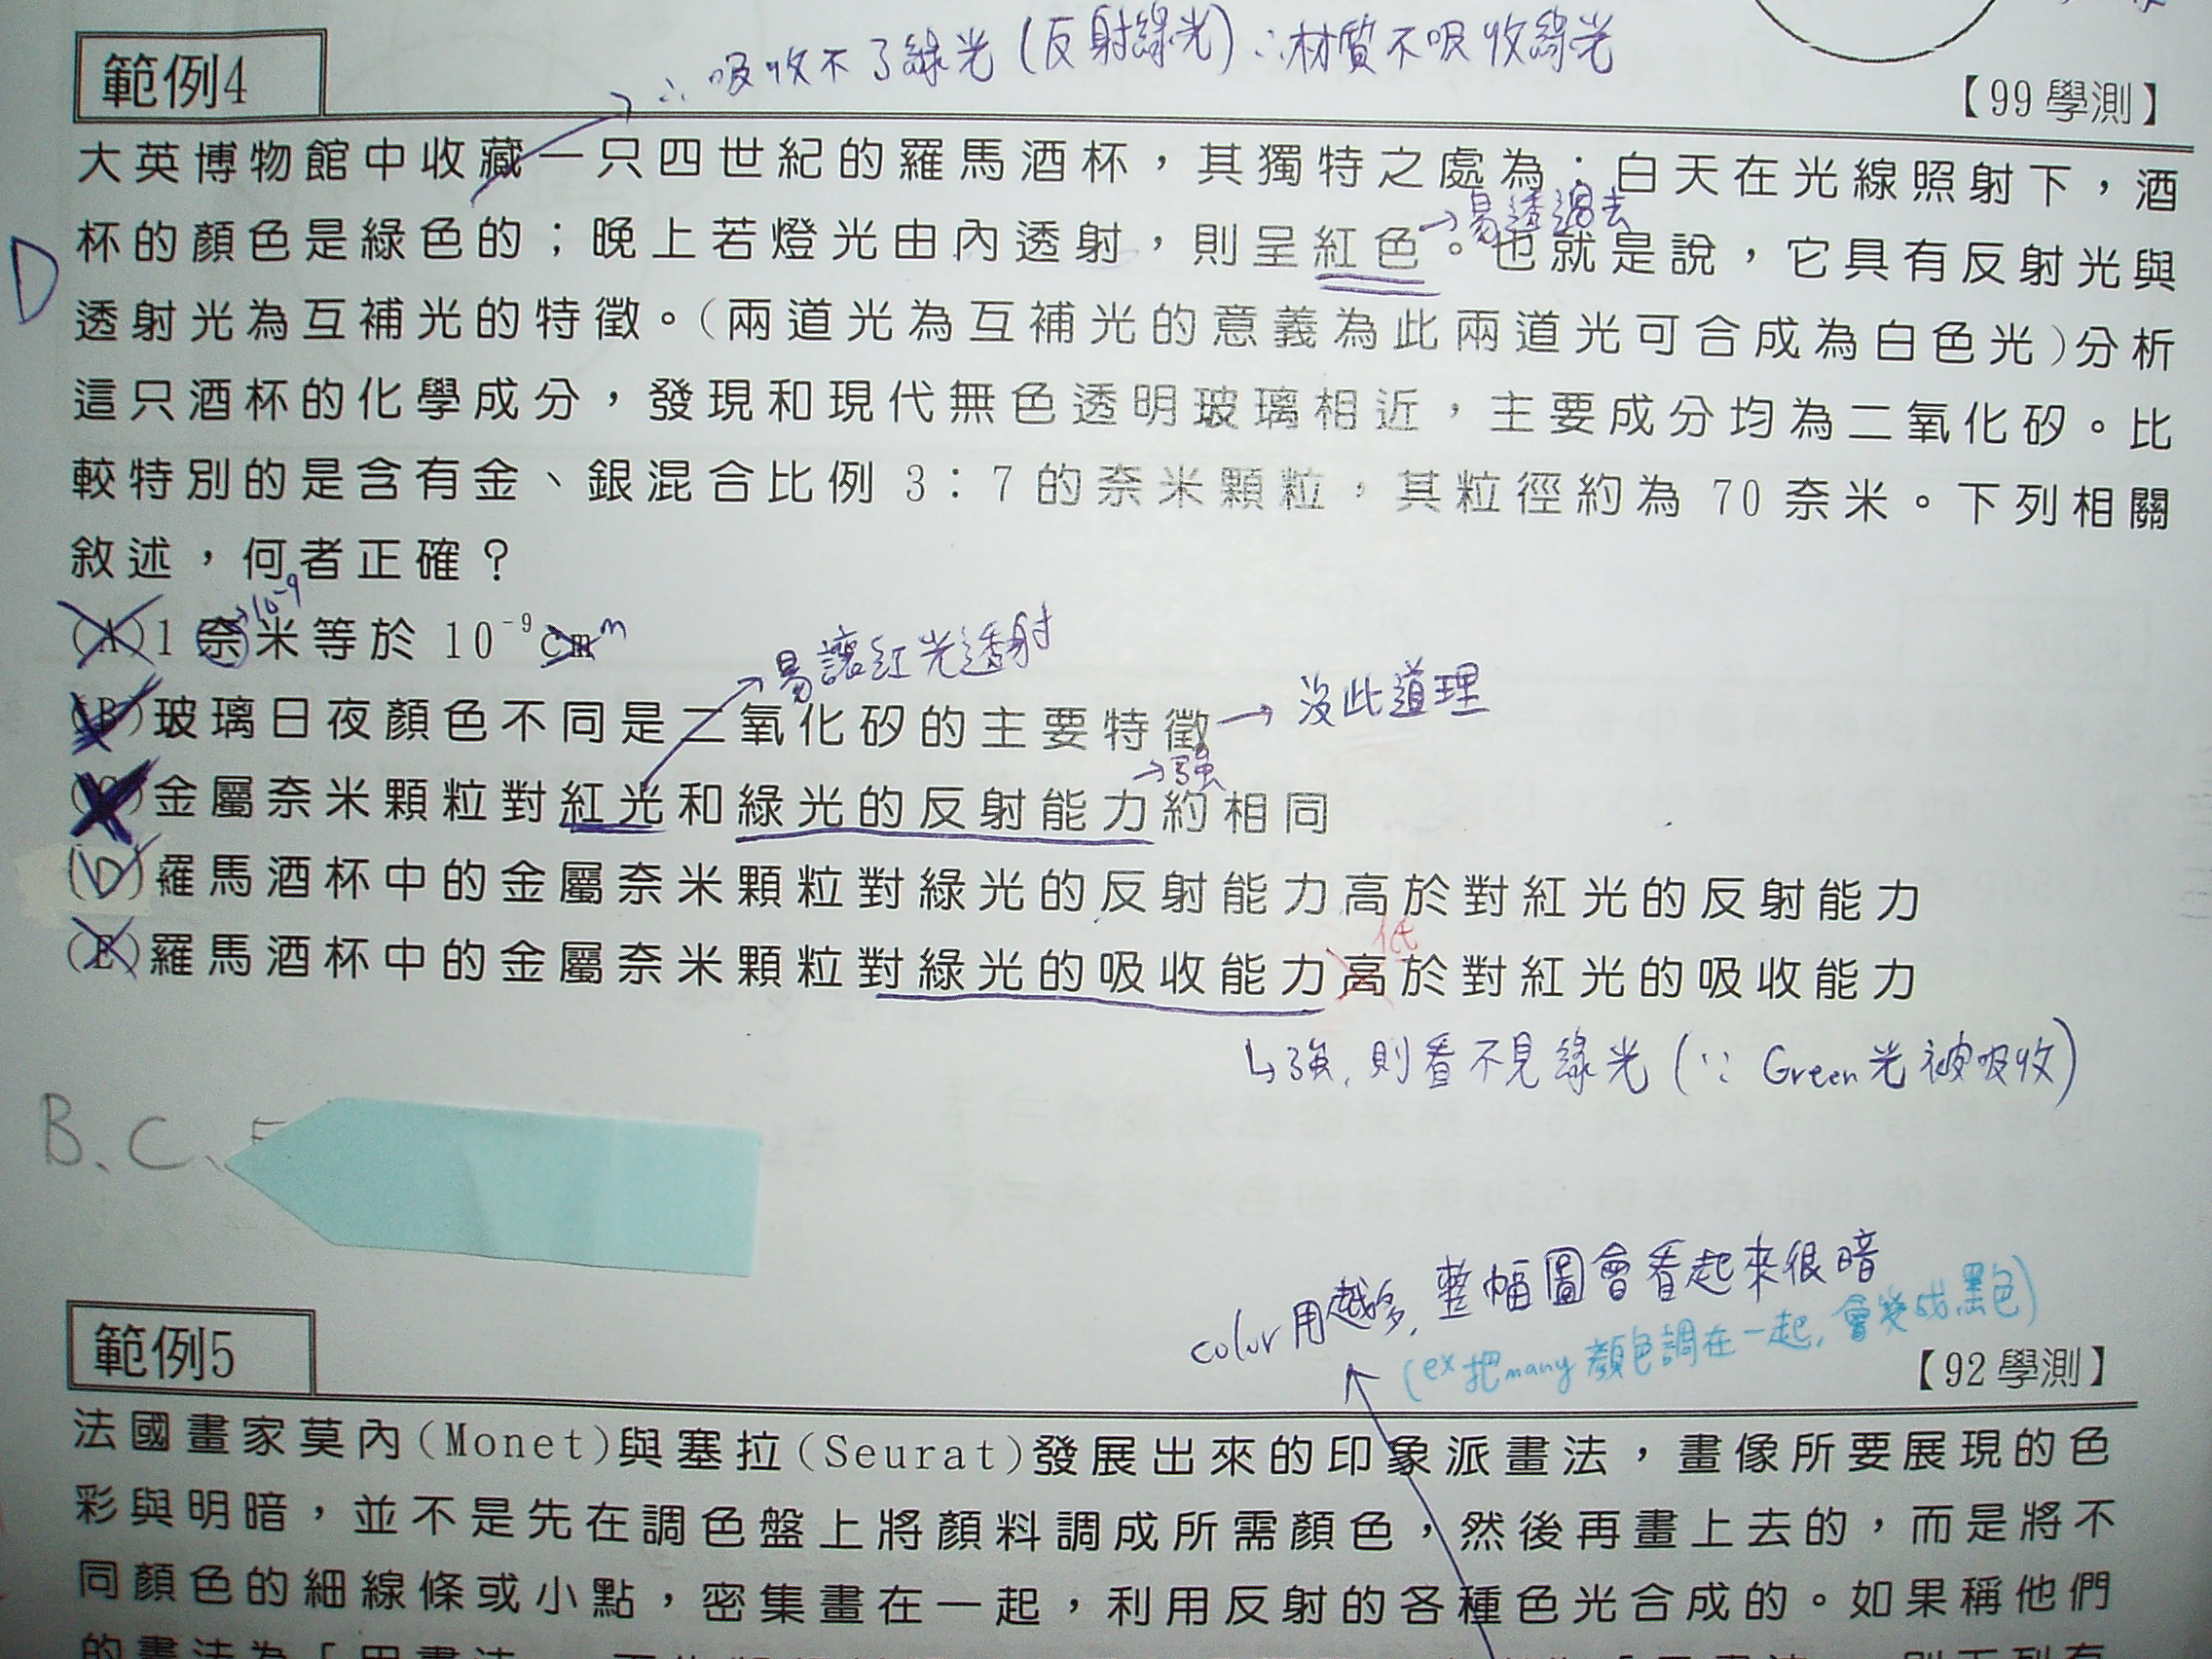 ∴吸收不了綠光(反射綠光)∴材質不吸收綠光
範例4
【99學測】
大英博物館中收藏一只四世紀的羅馬酒杯，其獨特之處為：白天在光線照射下，酒
→易透過去
杯的顏色是綠色的；晚上若燈光由內透射，則呈紅色。也就是說，它具有反射光與
D
透射光為互補光的特徵。(兩道光為互補光的意義為此兩道光可合成為白色光)分析
這只酒杯的化學成分，發現和現代無色透明玻璃相近，主要成分均為二氧化矽。比
較特別的是含有金、銀混合比例 3：7的奈米顆粒，其粒徑約為 70奈米。下列相關
敘述，何者正確？
→10⁻⁹
(A)1 奈米等於 10⁻⁹cm m
易讓紅光透射
(B)玻璃日夜顏色不同是二氧化矽的主要特徵→沒此道理
→強
(C)金屬奈米顆粒對紅光和綠光的反射能力約相同
(D)羅馬酒杯中的金屬奈米顆粒對綠光的反射能力高於對紅光的反射能力
低
(E)羅馬酒杯中的金屬奈米顆粒對綠光的吸收能力高於對紅光的吸收能力
↳強，則看不見綠光(∵Green光被吸收)
B、C、
color用越多，整幅圖會看起來很暗
(ex把many顏色調在一起，會變成黑色)
範例5
【92學測】
法國畫家莫內(Monet)與塞拉(Seurat)發展出來的印象派畫法，畫像所要展現的色
彩與明暗，並不是先在調色盤上將顏料調成所需顏色，然後再畫上去的，而是將不
同顏色的細線條或小點，密集畫在一起，利用反射的各種色光合成的。如果稱他們